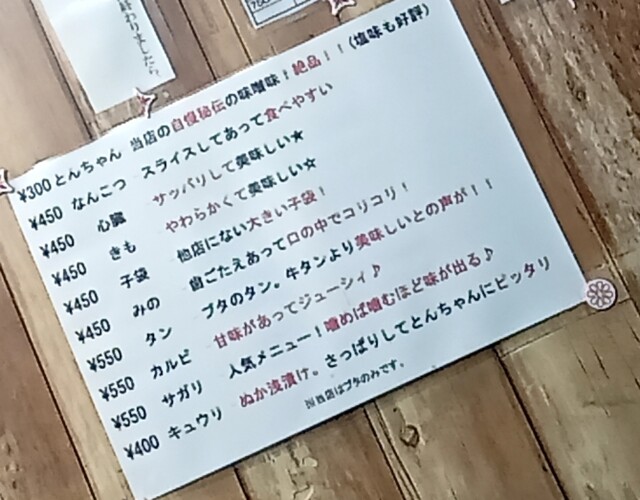 終わりましたら、
¥300 とんちゃん 当店の自慢秘伝の味噌味！絶品！！（塩味も好評）
¥450 なんこつ スライスしてあって食べやすい
¥450 心臓 サッパリして美味しい★
¥450 きも やわらかくて美味しい☆
¥450 子袋 他店にない大きい子袋！
¥450 みの 歯ごたえあって口の中でコリコリ！
¥550 タン ブタのタン。牛タンより美味しいとの声が！！
¥550 カルビ 甘味があってジューシィ♪
¥550 サガリ 人気メニュー！噛めば噛むほど味が出る♪
¥400 キュウリ ぬか浅漬け。さっぱりしてとんちゃんにピッタリ
※当店はブタのみです。